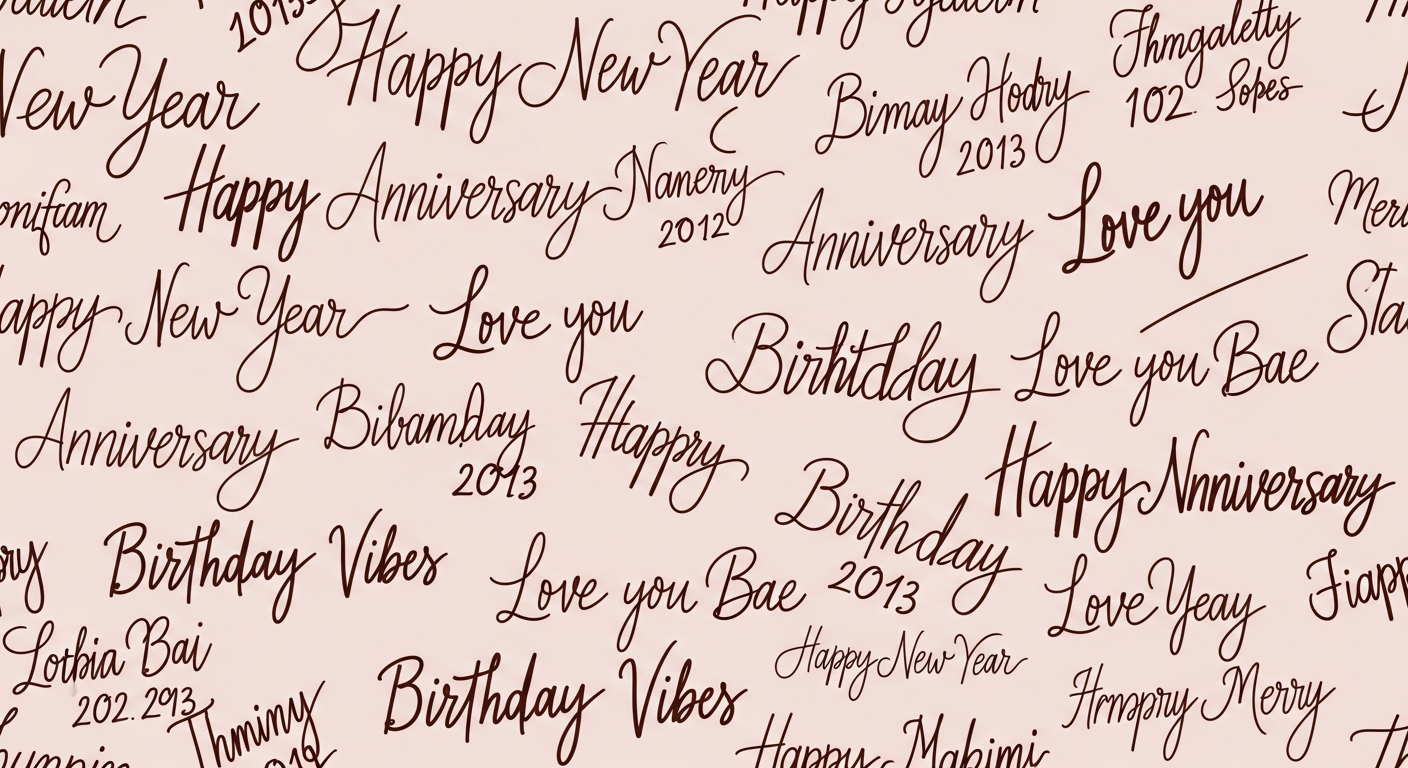 2013
Happy New Year
New Year
Bimay Hodry
2013
Fhmgaletty
102. Sopes
Happy Anniversary Nanery
2012
Anniversary
Love you
appy New Year
Love you
Birhtdday
Love you Bae
Anniversary
Bibamday
2013
Happry
Birthday
2013
Happy Nnniversary
Birthday Vibes
Love you Bae
Love Yeay
Lotbia Bai
202.293
Happy New Year
Birthday Vibes
Hrmpry Merry
Thminy
Happy Mabimi